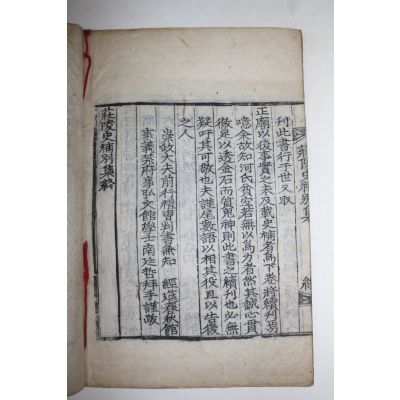 莊陵史補別集
終
刊此書行于世又取
正廟以後事實之未及載史補者爲下卷將續刊焉
噫余故知河氏貧窭若無以爲力者然其誠心貫
徹足以透金石而質鬼神則此書之續刊也必無
疑吁其可敬也夫謹尾數語以相其役且以告後
之人
崇政大夫前行禮曹判書兼知 經筵春秋館
事義禁府事弘文館學士南廷哲拜手謹跋
莊陵史補別集終